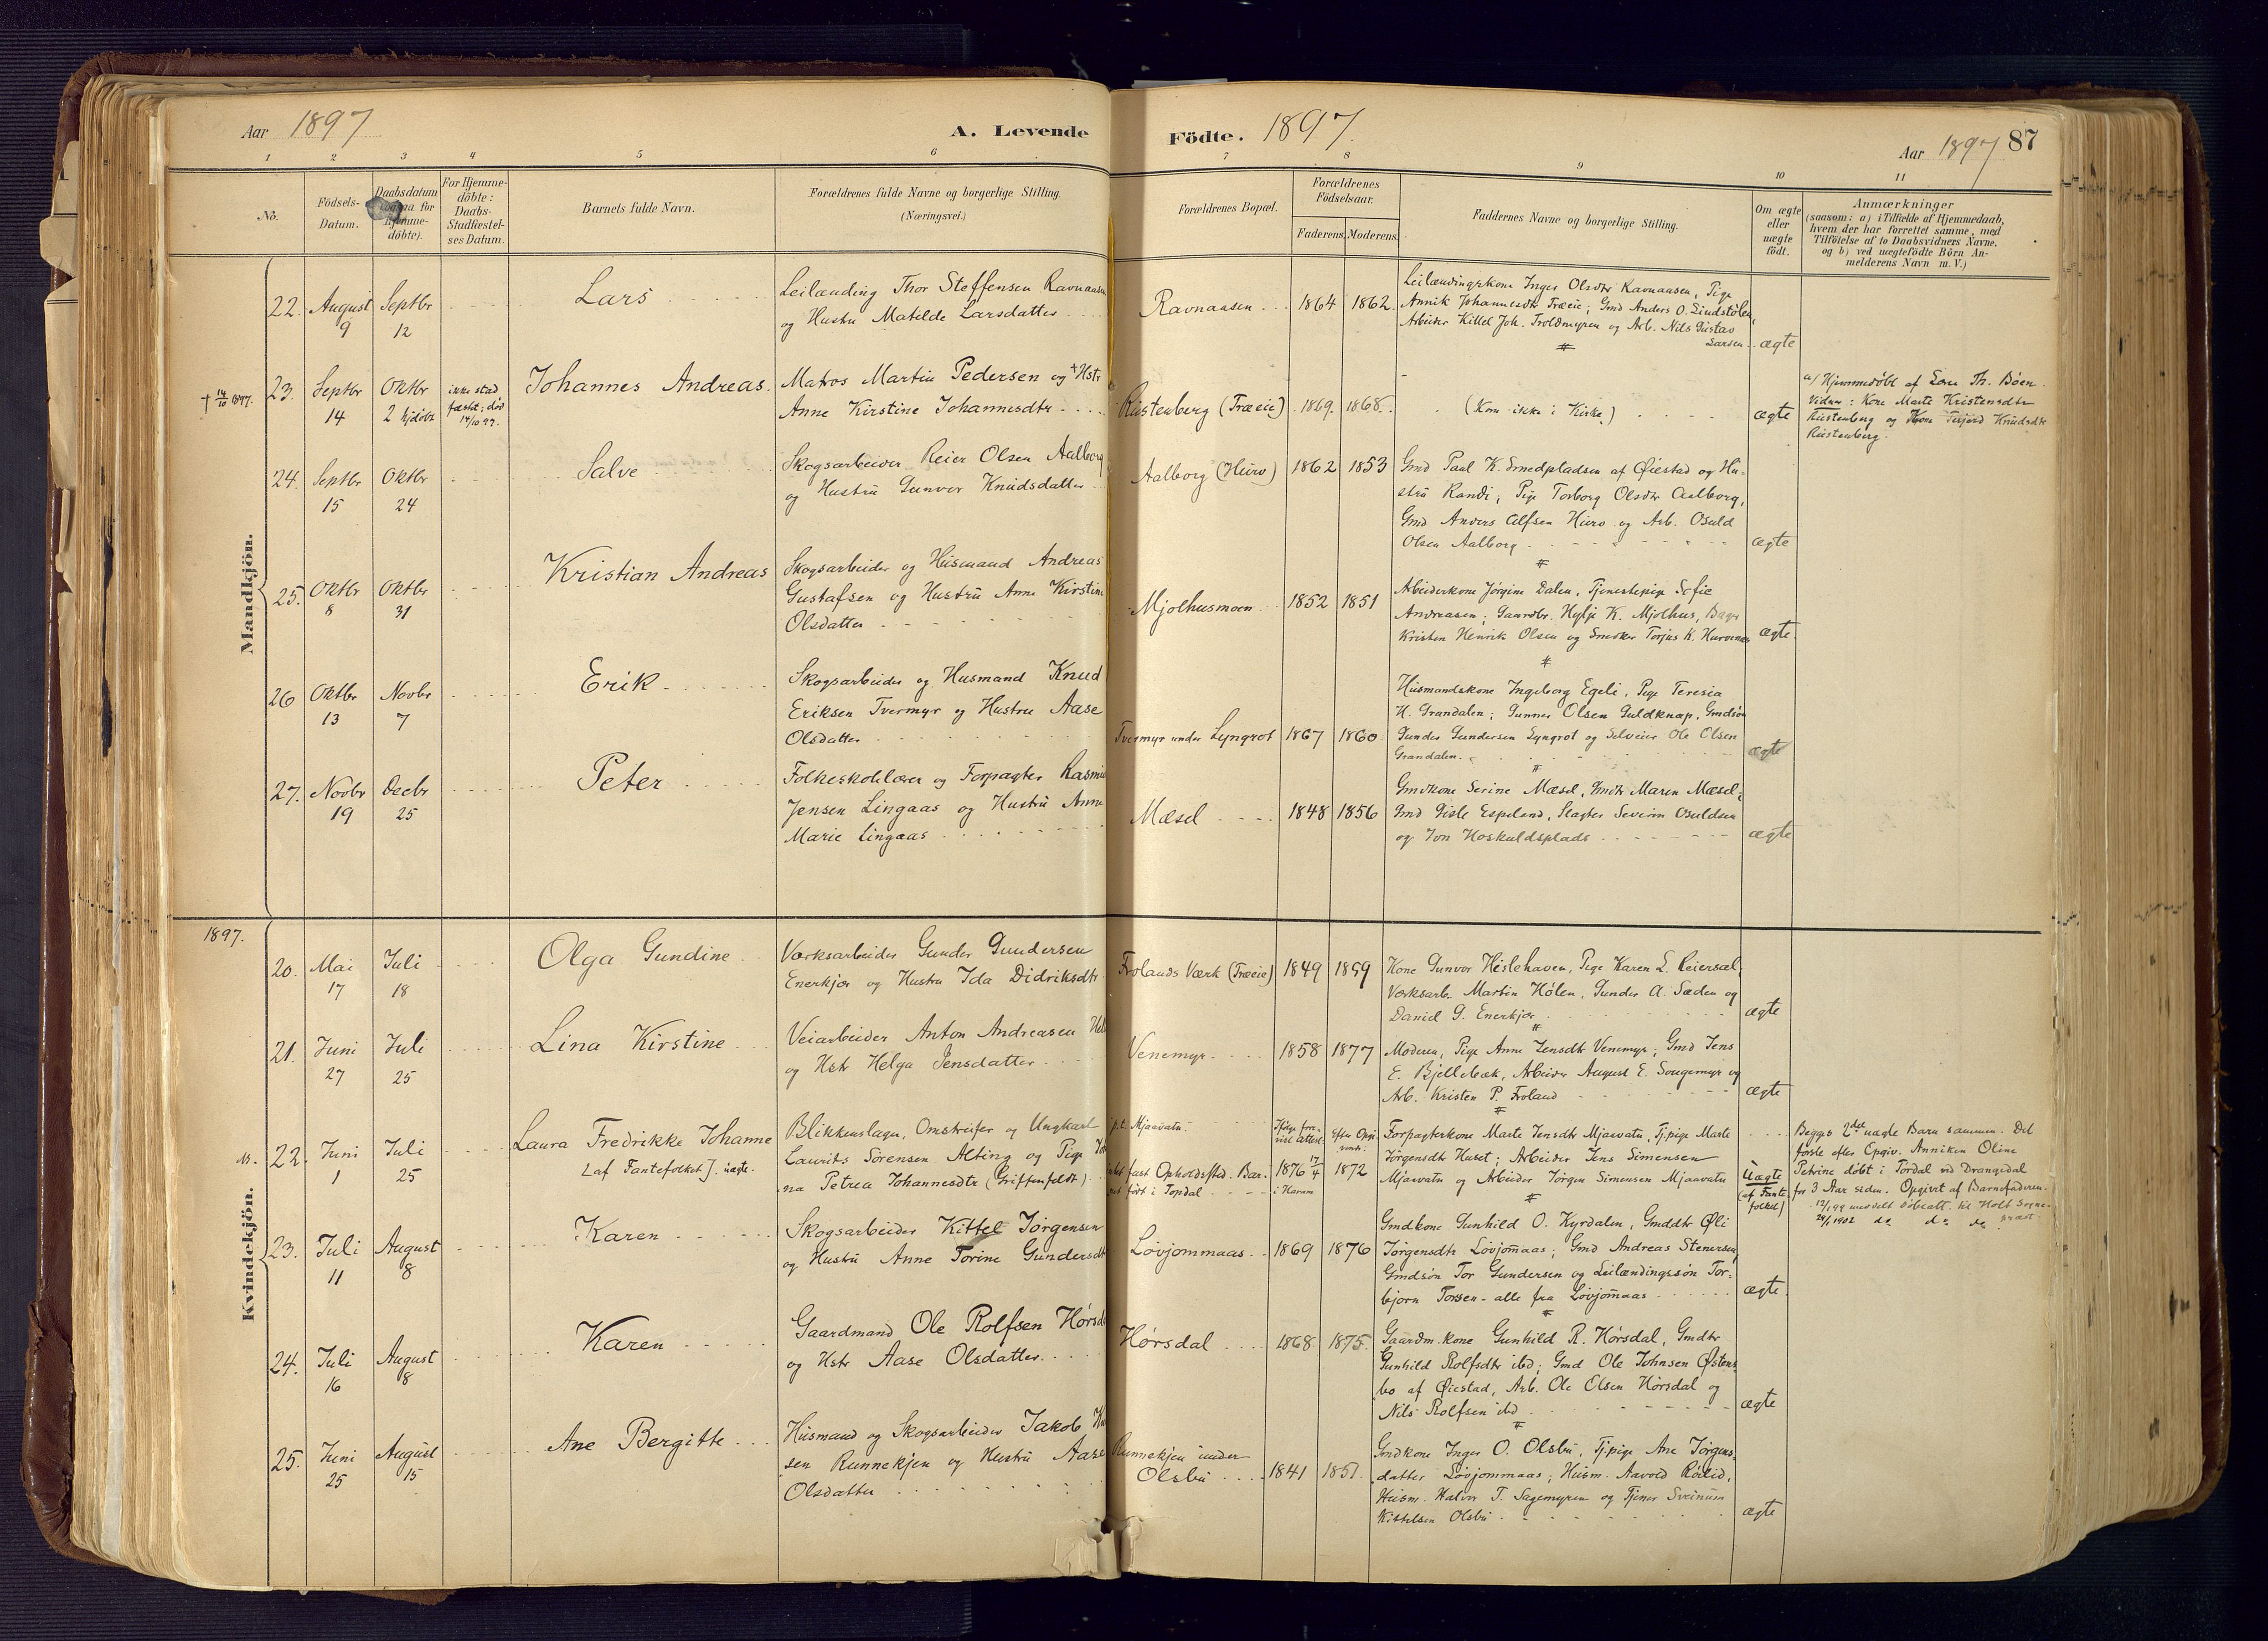 Aar 1897
A. Levende
Födte. 1897.
Aar 1897 87
1 2 3 4 5 6 7 8 9 10 11
No.
Födsels-
Datum.
Daabsdatum
for
Hjemme-
döbte).
For Hjemme-
döbte:
Daabs-
Stadfæstel-
ses Datum.
Barnets fulde Navn.
Forældrenes fulde Navne og borgerlige Stilling.
(Næringsvei.)
Forældrenes Bopæl.
Forældrenes
Födselsaar.
Faderens. Moderens.
Faddernes Navne og borgerlige Stilling.
Om ægte
eller
uægte
födt.
Anmærkninger
(saasom: a) i Tilfælde af Hjemmedaab,
hvem der har forrettet samme, med
Tilföielse af to Daabsvidners Navne.
og b) ved uægtefödte Börn An-
melderens Navn m. V.)
Mandkjön.
22. August 9
Septbr 12
Lars
Leilænding Thor Steffensen Ravnaasen
og Hustru Matilde Larsdatter
Ravnaasen 1864 1862.
Leilændingskone Inger Olsdtr Ravnaasen, Pige
Annik Johannesdtr Træeie; Gmd Anders O. Lindstølen,
Arbeider Kittel Joh. Troldmyren og Arb. Nils Gustav
Larsen
ægte
† 14/10 1897.
23. Septbr 14
Oktbr 2 hjdöbt
ikke stad
fæstet; död
14/10 97.
Johannes Andreas.
Matros Martin Pedersen og Hstr
Anne Kirstine Johannesdtr
Rustenberg (Træeie) 1869. 1868.
(Kom ikke i Kirke)
ægte
a/ Hjemmedöbt af Th. Böen.
Vidner: Kone Marte Kristensdtr
Rustenberg og Kone Knudsdtr
Rustenberg.
24. Septbr 15
Oktbr 24
Salve
Skogsarbeider Reier Olsen Aalborg
og Hustru Gunvor Knudsdatter
Aalborg (Hurv) 1862 1853
Gmd Paul K. Smedpladsen af Öiestad og Hu-
stru Randi; Pige Torborg Olsdtr Aalborg,
Gmd Anders Alfsen Hurv og Arb. Osuld
Olsen Aalborg
ægte
25. Oktbr 8
Oktbr 31
Kristian Andreas
Skogsarbeider og Husmand Andreas
Gustafsen og Hustru Anne Kirstine
Olsdatter
Mjolhusmoen 1852 1851
Arbeiderkone Jörgine Dalen, Tjenestepige Sofie
Andreasen; Gaardbr. Hylje K. Mjolhus, Bager
Kristen Henrik Olsen og Snedker Torjus K. Hurvenes
ægte.
26 Oktbr 13
Novbr 7
Erik
Skogsarbeider og Husmand Knud
Eriksen Tvermyr og Hustru Aase
Olsdatter
Tvermyr under Lyngrot 1867 1860
Husmandskone Ingeborg Egeli, Pige Teresia
H. Grandalen; Gunner Olsen Guldknap, Gmdsön
Gunder Gundersen Lyngrot og Selveier Ole Olsen
Grandalen.
ægte
27. Novbr 19
Decbr 25
Peter
Folkeskolelærer og Forpagter Rasmus
Jensen Lingaas og Hustru Anne
Marie Lingaas
Mæsel 1848 1856
Gmdkone Serine Mæsel, Gmdtr Maren Mæsel;
Gmd Gisle Espeland, Slagter Severin Osuldsen
og Jon Hoskuldsplads
ægte
1897.
Kvindekjön.
20. Mai 17
Juli 18
Olga Gundine
Værksarbeider Gunder Gundersen
Enerkjær og Hustru Ida Didriksdtr
Frolands Værk (Træeie) 1849 1859
Kone Gunvor Heslehaven, Pige Karen L. Reiersøl,
Værksarb. Martin Hólen, Gunder A. Sæden og
Daniel G. Enerkjær
ægte
21. Juni 27
Juli 25
Lina Kirstine
Veiarbeider Anton Andreasen
og Hstr Helga Jensdatter
Venemyr 1858 1877
Moderen, Pige Anne Jensdtr Venemyr; Gmd Jens
E. Bjellebæk, Arbeider August E. Songemyr og
Arb. Kristen P. Froland
ægte
22. Juni 1
Juli 25
Laura Fredrikke Johanne
[af Fantefolket]. uægte.
Blikkenslager, Omstreifer og Ungkarl
Laurits Sörensen Alting og Pige
na Petrea Johannesdtr (Griffenfeldt)
p.t. Mjaavatn.
fast Opholdssted. Bar-
net födt i Topdal
1876 17/4 1872
Forpagterkone Marte Jensdtr Mjaavatn, Tj.pige Marte
Jörgensdtr Huset; Arbeider Jens Simensen
Mjaavatn og Arbeider Jörgen Simensen Mjaavatn
Uægte
(af Fante-
folket)
Begges 2det uægte Barn sammen. Det
förste efter Opgiv. Anniken Oline
Petrine döbt i Tördal ved Drangedal
for 3 Aar siden. Opgivet af Barnefaderen.
12/1 99 meddelt döbeatt. til Holt Sogne-
24/1 1902 do do do præst.
23. Juli 11
August 8
Karen
Skogsarbeider Kittel Jörgensen
og Hustru Anne Torine Gundersdtr
Lövjommaas 1869 1876
Gmdkone Gunhild O. Kyrdalen, Gmddtr Öli
Jörgensdtr Lövjomaas; Gmd Andreas Stenersen,
Gmdsön Tor Gundersen og Leilændingssön Tor-
bjorn Torsen - alle fra Lövjomaas
ægte.
24. Juli 16
August 8
Karen
Gaardmand Ole Rolfsen Hörsdal
og Hstr Aase Olsdatter
Hörsdal 1868. 1875.
Gaardm.kone Gunhild R. Hörsdal, Gmdtr
Gunhild Rolfsdtr ibd; Gmd Ole Johnsen Östens
bo af Öiestad, Arb. Ole Olsen Hörsdal og
Nils Rolfsen ibd
ægte
25. Juni 25
August 15
Ane Bergitte
Husmand og Skogsarbeider Jakob
sen Runnekjen og Hustru Aase
Olsdatter
Runnekjen under
Olsbu 1841 1851.
Gmdkone Inger O. Olsbu, Tj.pige Ane Jörgens-
datter Lövjommaas; Husm. Aavold Rólid,
Husm. Halvor T. Sagemyren og Tjener Sveinum
Kittelsen Olsbu
ægte